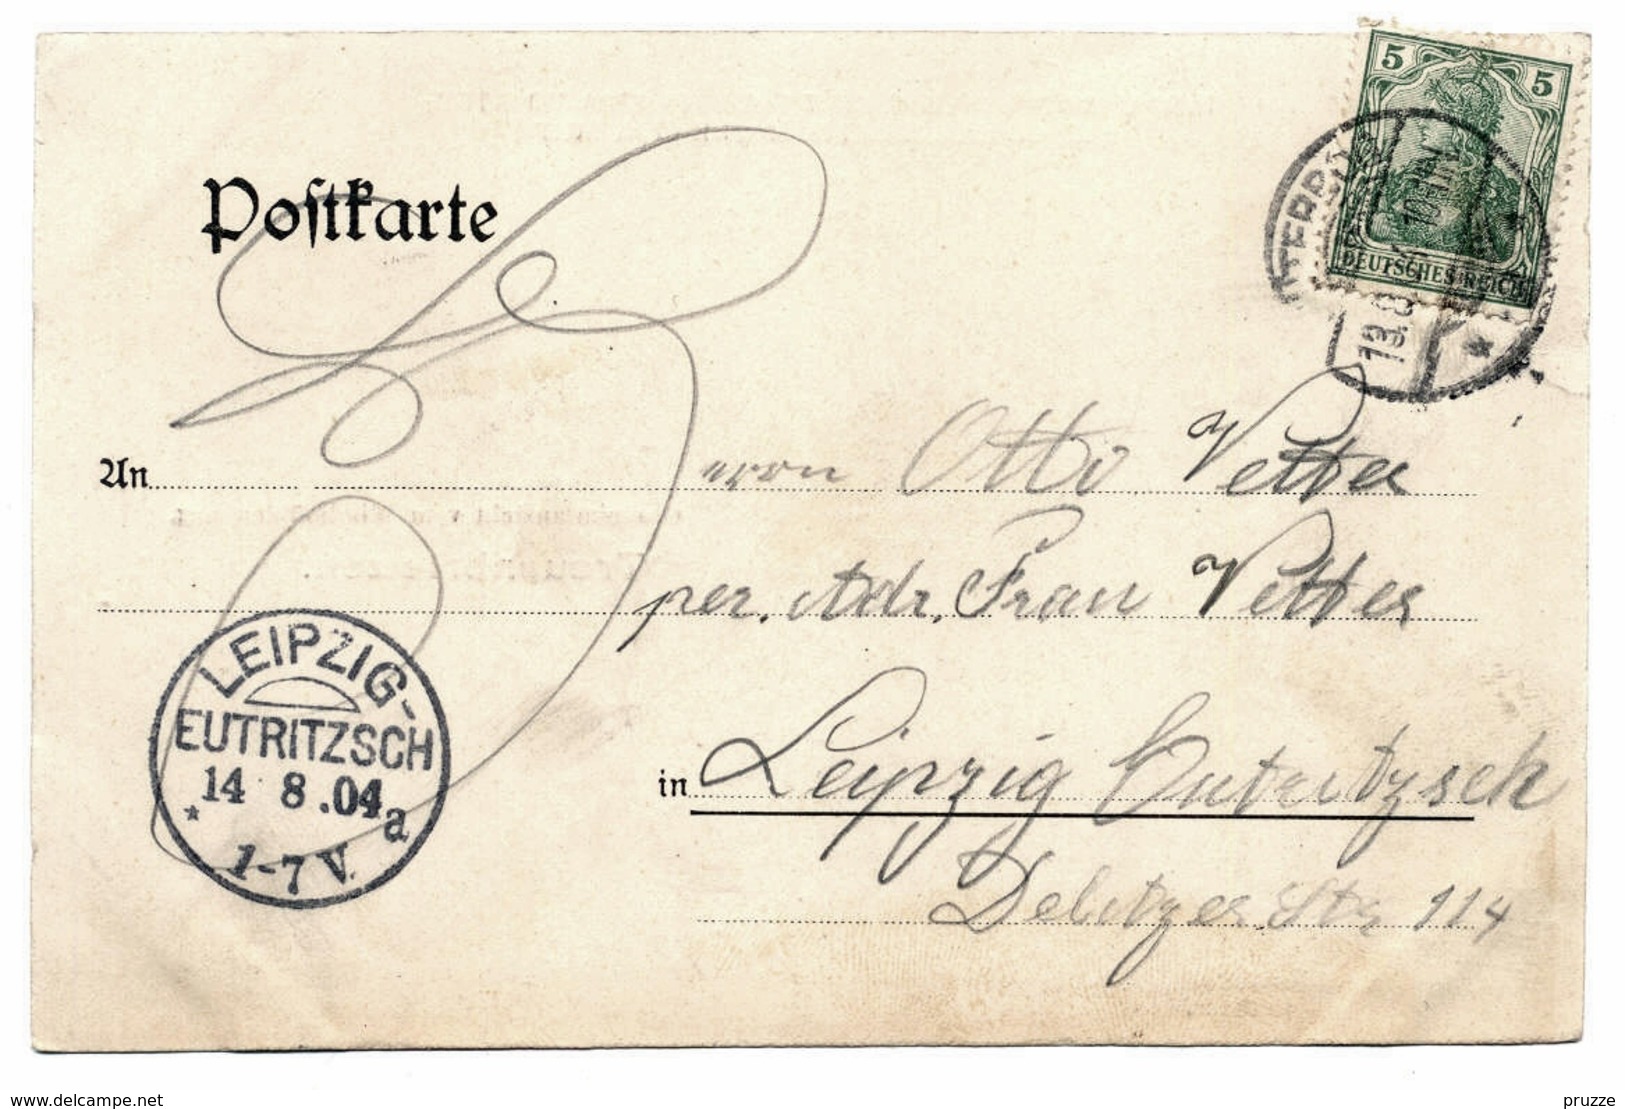 Postkarte
5 5
DEUTSCHES REICH
13.8
An Herrn Otto Vetter
per. Adr. Frau Vetter
in Leipzig Eutritzsch
Delitzer Str 114
LEIPZIG-
EUTRITZSCH
14 8.04
a
1-7 V.
www.delcampe.net
pruzze